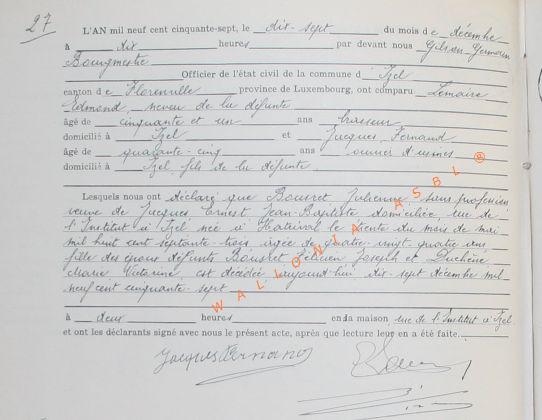 27
L'AN mil neuf cent cinquante-sept, le dix-sept du mois de décembre
à dix heures par devant nous Gilson Germain
Bourgmestre
Officier de l'état civil de la commune d'Izel
canton de Florenville province de Luxembourg, ont comparu Lemaire
Edmond, neveu de la défunte
âgé de cinquante et un ans brasseur
domicilié à Izel et Jacques, Fernand
âgé de quarante-cinq ans ouvrier d'usines
domicilié à Izel fils de la défunte
Lesquels nous ont déclaré que Bousret, Julienne, sans profession
veuve de Jacques, Ernest Jean-Baptiste domiciliée, rue de
l'Institut à Izel née à Hatrival le trente du mois de mai
mil huit cent septante-trois, âgée de quatre-vingt-quatre ans,
fille des époux défunts Bousret Félicien Joseph et Duchêne
Marie Victorine, est décédée aujourd'hui, dix-sept décembre mil
neuf cent cinquante-sept
à deux heures en da maison rue de l'Institut à Izel
et ont les déclarants signé avec nous le présent acte, après que lecture leur en a été faite.
Jacques Fernand
WALLONIA ASBL ®